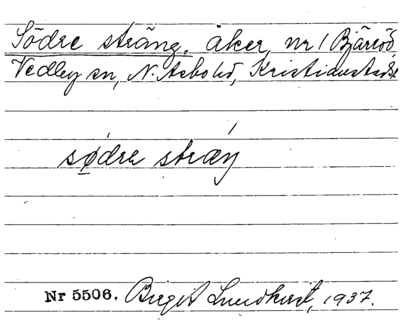 Södre sträng, åker, nr 1 Bjärröd
Vedby sn, N. Åsbo hd, Kristianstads l
sødrə stræŋ
Nr 5506. Birgit Lundkvist, 1937.